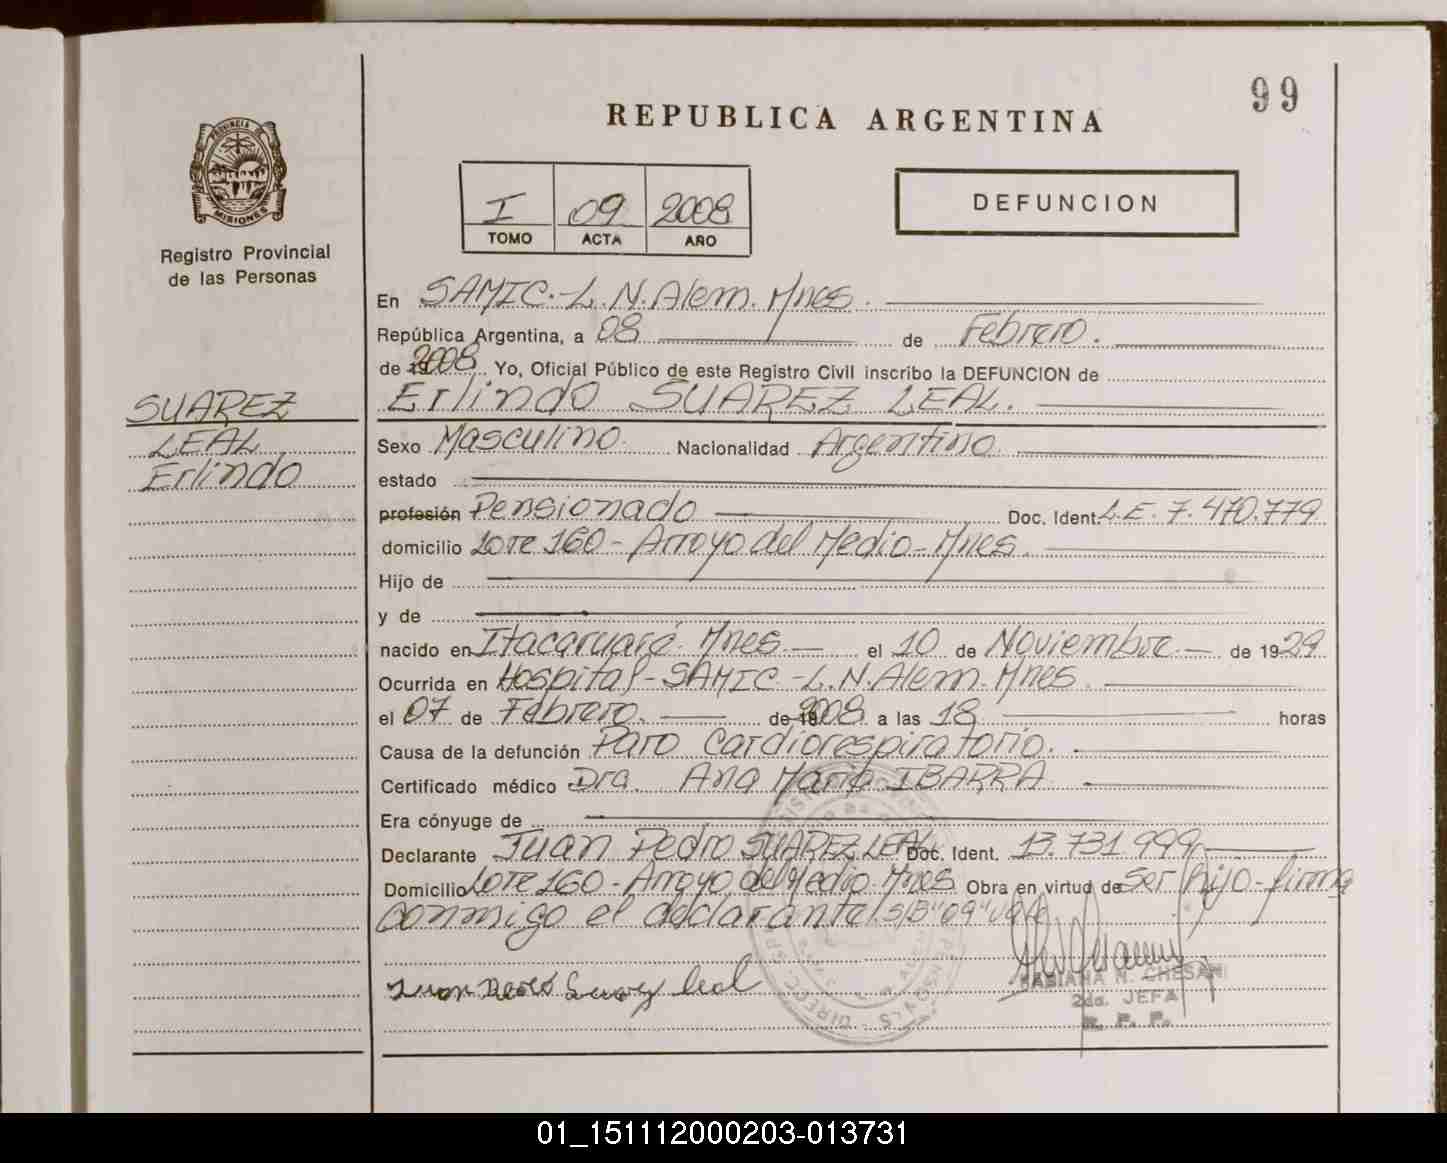 99
REPUBLICA ARGENTINA
PROVINCIA DE
MISIONES
Registro Provincial
de las Personas
I 09 2008
TOMO ACTA AÑO
DEFUNCION
En SAMIC.-L.N.Alem. Mnes.
República Argentina, a 08 de Febrero.
de 19 2008 Yo, Oficial Público de este Registro Civil inscribo la DEFUNCION de
Erlindo SUAREZ LEAL.
SUAREZ
LEAL
Erlindo
Sexo Masculino. Nacionalidad Argentino.
estado
profesión Pensionado Doc. Ident. L.E. 7.470.779
domicilio Lote 160-Arroyo del Medio-Mnes.
Hijo de
y de
nacido en Itacaruaré. Mnes. el 10 de Noviembre de 1929
Ocurrida en Hospital-SAMIC.-L.N.Alem.Mnes.
el 07 de Febrero. de 19 2008 a las 18 horas
Causa de la defunción Paro Cardiorespiratorio.
Certificado médico Dra. Ana María IBARRA
Era cónyuge de
Declarante Juan Pedro SUAREZ LEAL Doc. Ident. 13.731.999
Domicilio Lote 160-Arroyo del Medio-Mnes Obra en virtud de ser hijo-firma
conmigo el declarante S/B "09"
Juan Pedro Suarez leal
FABIANA N. CHESANI
2da. JEFA
R. P. P.
01_151112000203-013731